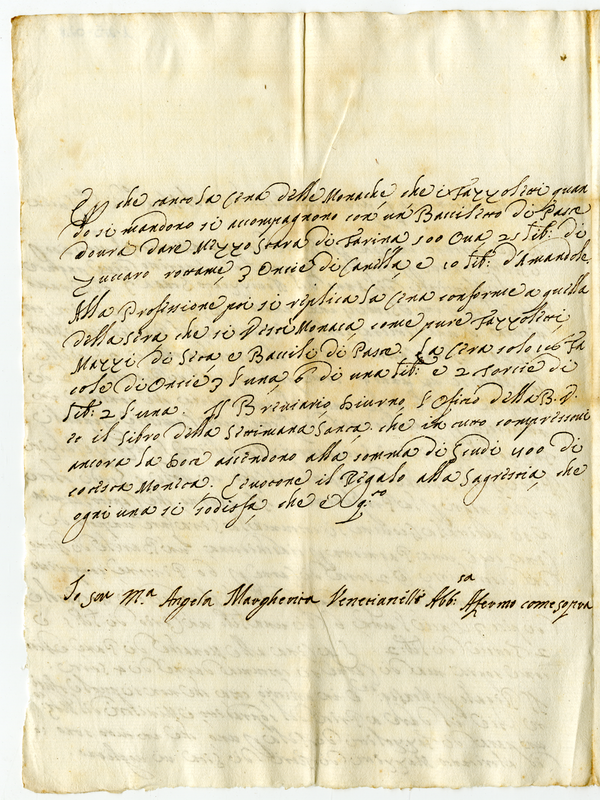 che tanto la Cena delle Monache che i Fazzoletti quan
do si mandono si accompagnono con un Bacciletto di Paste
doura dare Mezzo Stara di Farina 100 Oua 25 lib: di
zuccaro rottame, 3 Oncie di Canella e 10 lib: d'Amandole
Alla Professione poi si riplica la Cena conforme a quella
della sera che si Vesti Monaca come pure Fazzoletti
Mazzi di Seta e Baccile di Paste. La Cera solo 16 Fa
cole di Oncie 3 l'una 6 di una lib: e 2 Torcie di
lib: 2 l'una. Il Breviario, Diurno, l'Oficio della B. V.
et il libro della Settimana Santa, che in tutto compresoui
ancora la Dote ascendono alla somma di Scudi 400 di
cotesta Moneta. Eccetone il Regalo alla Sagrestia, che
ogni una si sodissfà, che è q.to
Io Suor M.a Angela Margherita Venetianelli Abb:sa Afermo come sopra